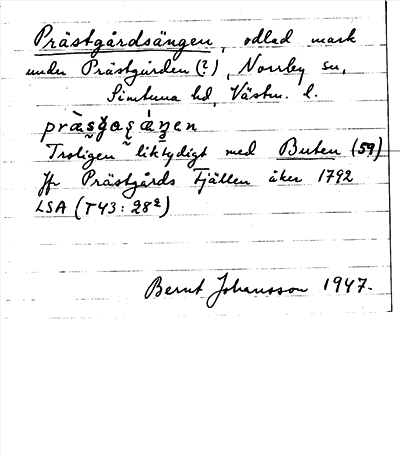 Prästgårdsängen, odlad mark
under Prästgården (?), Norrby sn,
Simtuna hd, Västm. l.
Troligen liktydigt med Buten (59)
Jfr Prästgårds Fjällen åker 1792
LSA (T43: 28²)
Bernt Johansson 1947.